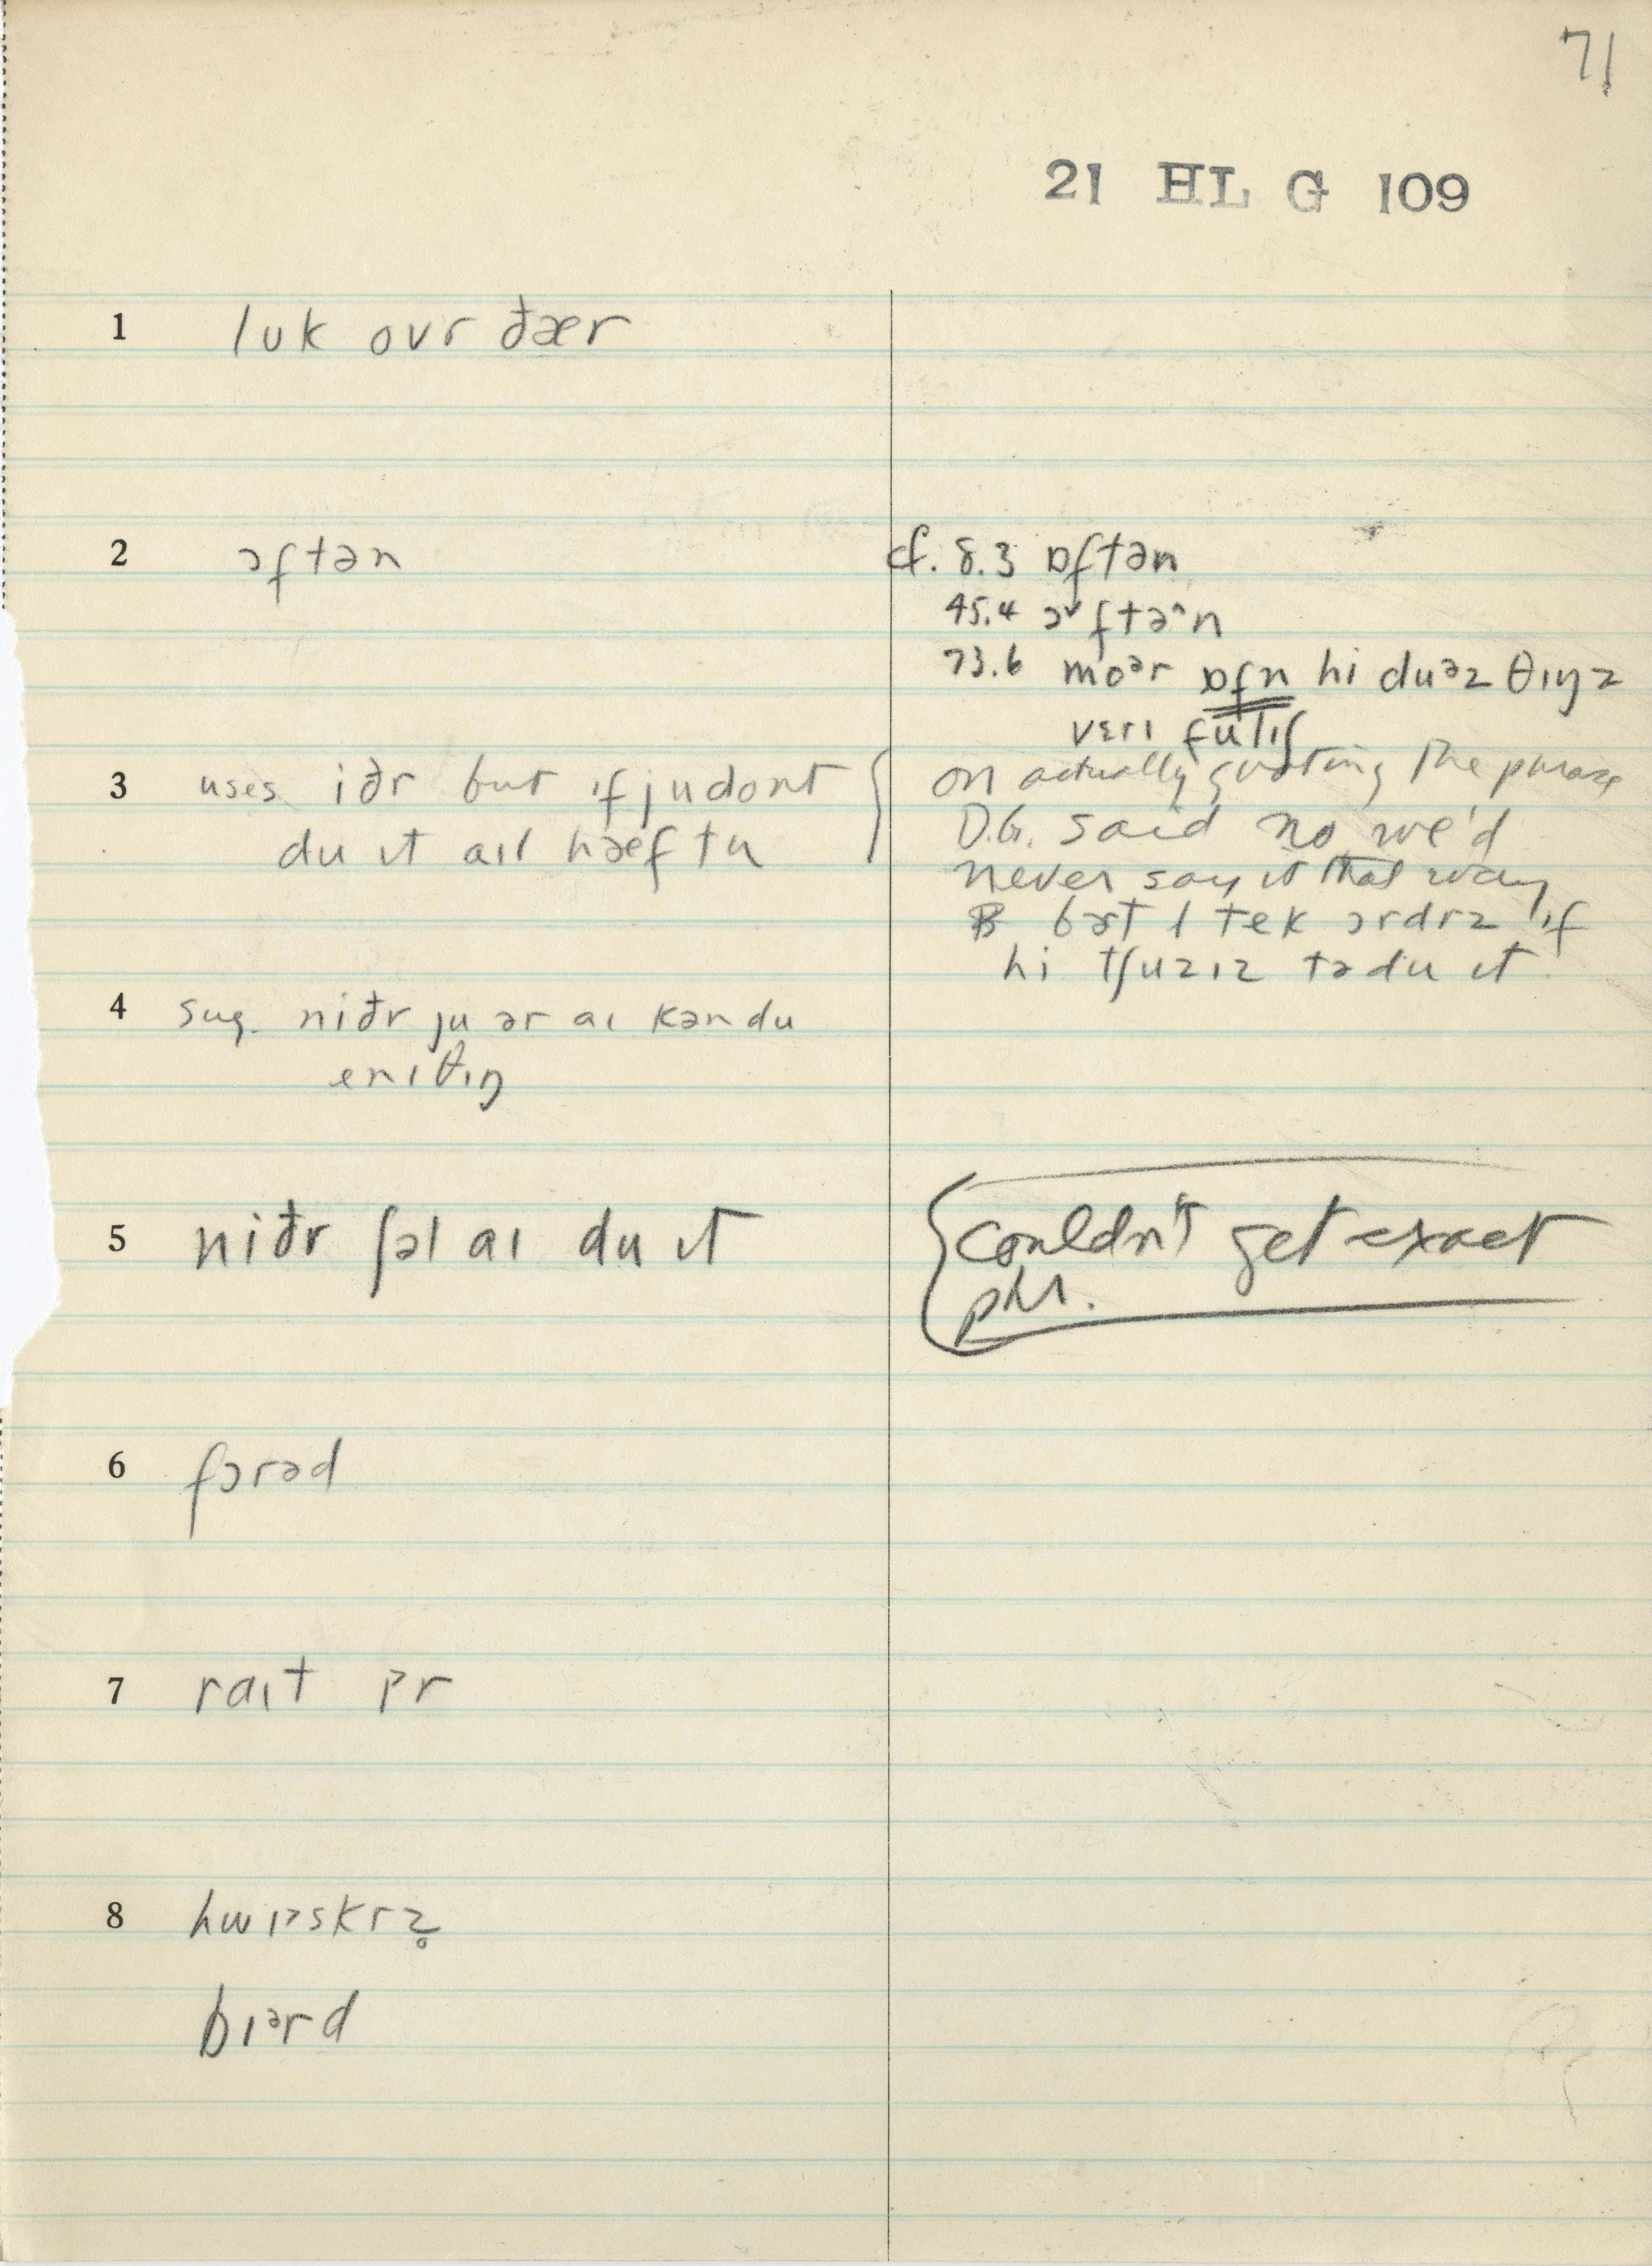 71
21 HL G 109
1 luk ovr ðær
2 ɔftən
cf. 8.3 ɒftən
45.4 ɔ˅ftə^n
73.6 moər ɒfn hi duəz θɪŋz
vɛrɪ fulɪʃ
3 uses iðr but ɪf ju dont
du ɪt aɪl hæf tu
on actually quoting the phrase
D.G. said no we'd
never say it that way
tek ɔrdrz ɪf
hi tʃuzɪz tə du ɪt
4 sug. niðr ju ər aɪ kən du
enɪθɪŋ
5 niðr ʃəl aɪ du ɪt
couldn't get exact
phr.
6 fɔrəd
7 raɪt ɪr
8 hwɪəskrz̥
bɪərd